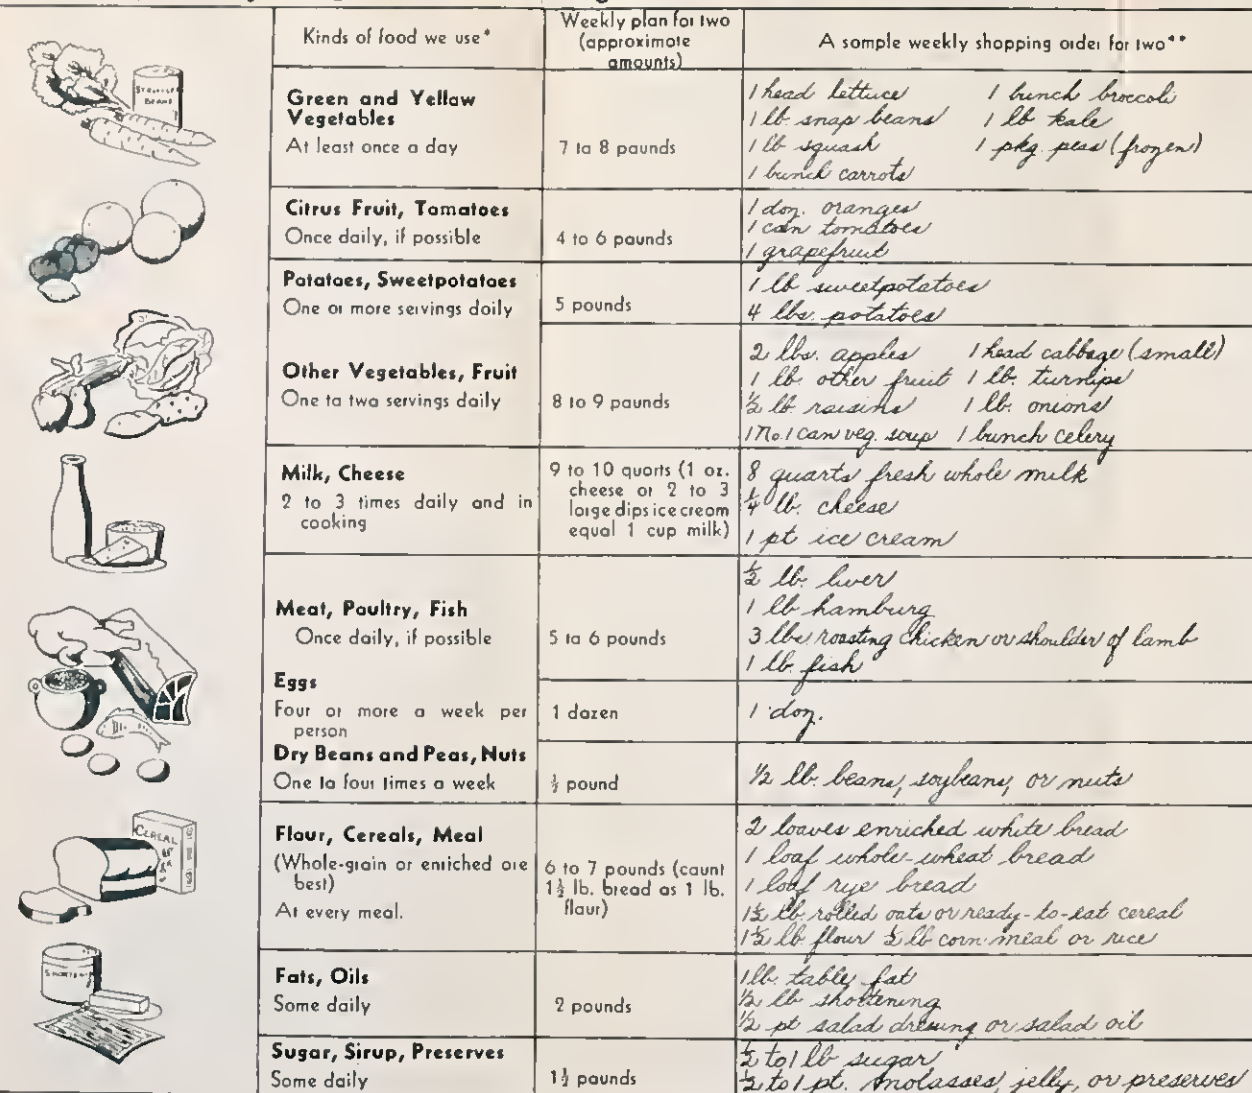 Kinds of food we use*
Weekly plan for two
(approximate
amounts)
A sample weekly shopping order for two**
STRINGLESS
BEANS
Green and Yellow
Vegetables
At least once a day
7 to 8 pounds
1 head lettuce 1 bunch broccoli
1 lb. snap beans 1 lb kale
1 lb squash 1 pkg. peas (frozen)
1 bunch carrots
Citrus Fruit, Tomatoes
Once daily, if possible
4 to 6 pounds
1 doz. oranges
1 can tomatoes
1 grapefruit
Potatoes, Sweetpotatoes
One or more servings daily
5 pounds
1 lb sweetpotatoes
4 lbs. potatoes
Other Vegetables, Fruit
One to two servings daily
8 to 9 pounds
2 lbs. apples 1 head cabbage (small)
1 lb. other fruit 1 lb. turnips
½ lb. raisins 1 lb. onions
1 No. 1 can veg. soup 1 bunch celery
Milk, Cheese
2 to 3 times daily and in
cooking
9 to 10 quarts (1 oz.
cheese or 2 to 3
large dips ice cream
equal 1 cup milk)
8 quarts fresh whole milk
¼ lb. cheese
1 pt ice cream
Meat, Poultry, Fish
Once daily, if possible
5 to 6 pounds
½ lb. liver
1 lb hamburg
3 lbs roasting chicken or shoulder of lamb
1 lb. fish
Eggs
Four or more a week per
person
1 dozen
1 doz.
Dry Beans and Peas, Nuts
One to four times a week
½ pound
½ lb. beans, soybeans, or nuts
CEREAL
Flour, Cereals, Meal
(Whole-grain or enriched are
best)
At every meal.
6 to 7 pounds (count
1½ lb. bread as 1 lb.
flour)
2 loaves enriched white bread
1 loaf whole-wheat bread
1 loaf rye bread
1½ lb. rolled oats or ready-to-eat cereal
1½ lb flour ½ lb corn meal or rice
Fats, Oils
Some daily
2 pounds
1 lb. table fat
½ lb shortening
½ pt salad dressing or salad oil
Sugar, Sirup, Preserves
Some daily
1½ pounds
½ to 1 lb sugar
½ to 1 pt. molasses, jelly, or preserves